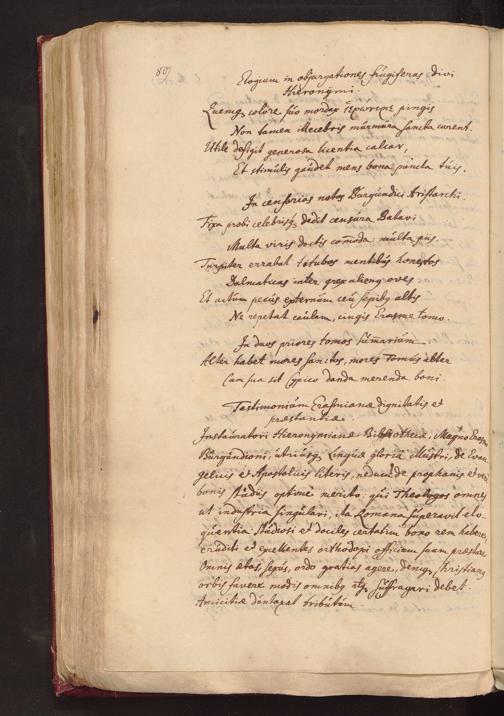 Elogium in objurgationes frugiferas divi
Hieronymi.
Quemq colore suo mordax pingis
Non tamen illecebris murmura sancta carent.
Utile defigit generosa licentia calcar,
Et stimulis gaudet mens bona puncta tuis.
In censorias notas Burgundici Aristarchi.
Fixa probi celebrisq dedit censura Batavi
Multa viris doctis comoda multa piis
Turpiter errabat titubos mentibus honestos
Dalmaticas inter grex alienq oves
Et actum pecus externum ceu sepibq altis
Ne repetat caulam, cingis Erasme tomo.
In duos priores tomos summarium.
Alter habet mores sanctos, mores Tomus alter
Cum sua sit danda merenda boni.
Testimonium Erasmianae dignitatis et
praestantiae.
Instauratori Hieronymianae Bibliothecae, Magno Erasmo
Burgundioni, utriusq Linguae gloria illustri, de Evan
gelicis et Apostolicis literis, nedum de prophanis et
bonis studiis optime merito: qui Theologos omnes
ut industria singulari, ita Romana superavit elo
quentia studiosi et dociles certatim bono rem habere,
eruditi et excellentes orthodoxi officium suum praestare
Omnis aetas, sexus, ordo gratias agere, deniq Christianq
orbis favere modis omnibq atq suffragari debet.
Amicitiae duntaxat tributum.